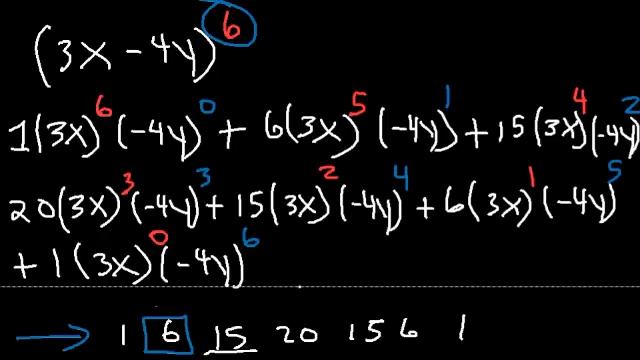 (3x - 4y)^6
1(3x)^6 (-4y)^0 + 6(3x)^5 (-4y)^1 + 15(3x)^4 (-4y)^2
20(3x)^3 (-4y)^3 + 15(3x)^2 (-4y)^4 + 6(3x)^1 (-4y)^5
+ 1(3x)^0 (-4y)^6
→ 1 6 15 20 15 6 1